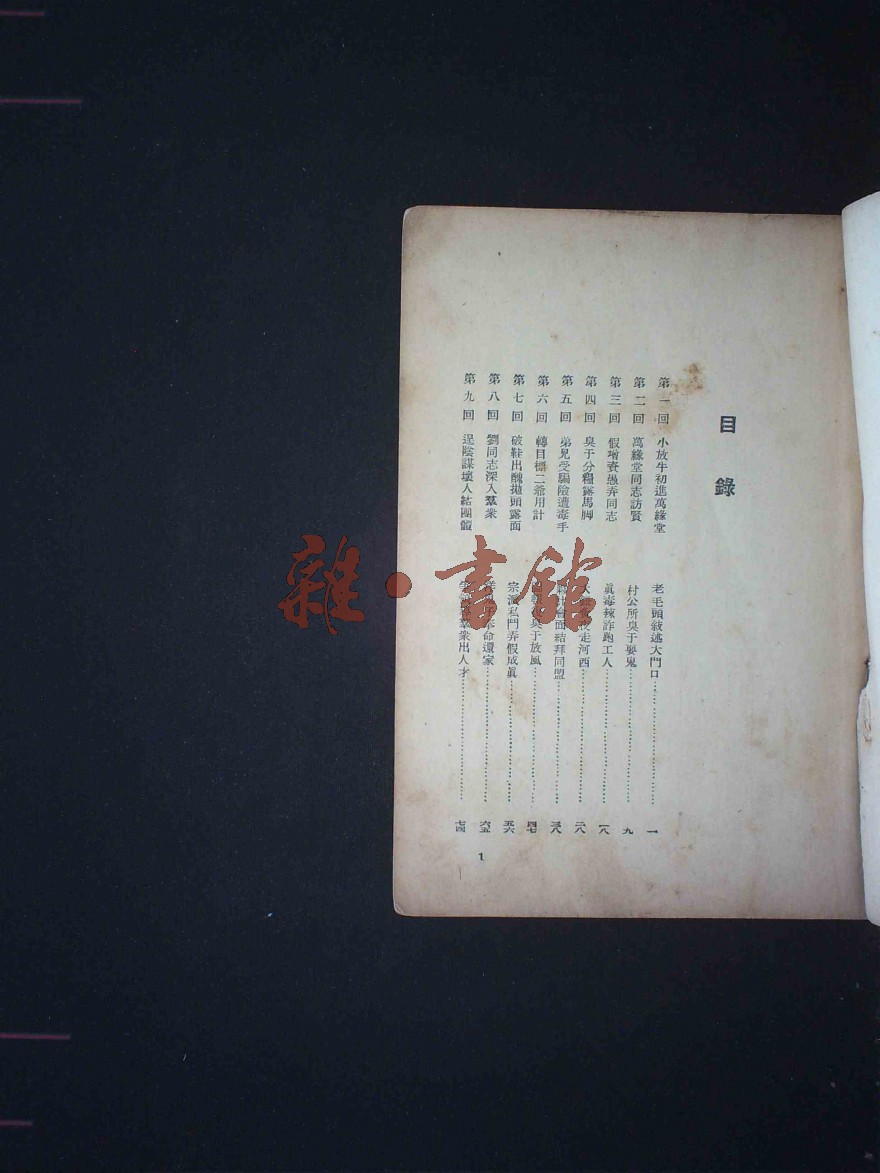 目錄
第一回 小放牛初進萬緣堂 老毛頭敍述大門口 一
第二回 萬緣堂同志訪賢 村公所臭于耍鬼 九
第三回 假增資愚弄同志 眞毒辣詐跑工人 一八
第四回 臭于分糧露馬脚 走河西 二八
第五回 弟兄受騙險遭毒手 面結拜同盟 三八
第六回 轉目標二爺用計 臭于放風 四七
第七回 破鞋出醜拋頭露面 宗派私門弄假成眞 五六
第八回 劉同志深入羣衆 革命還家 六五
第九回 逞陰謀壞人結團體 羣衆出人才 七四
1
雜·書館